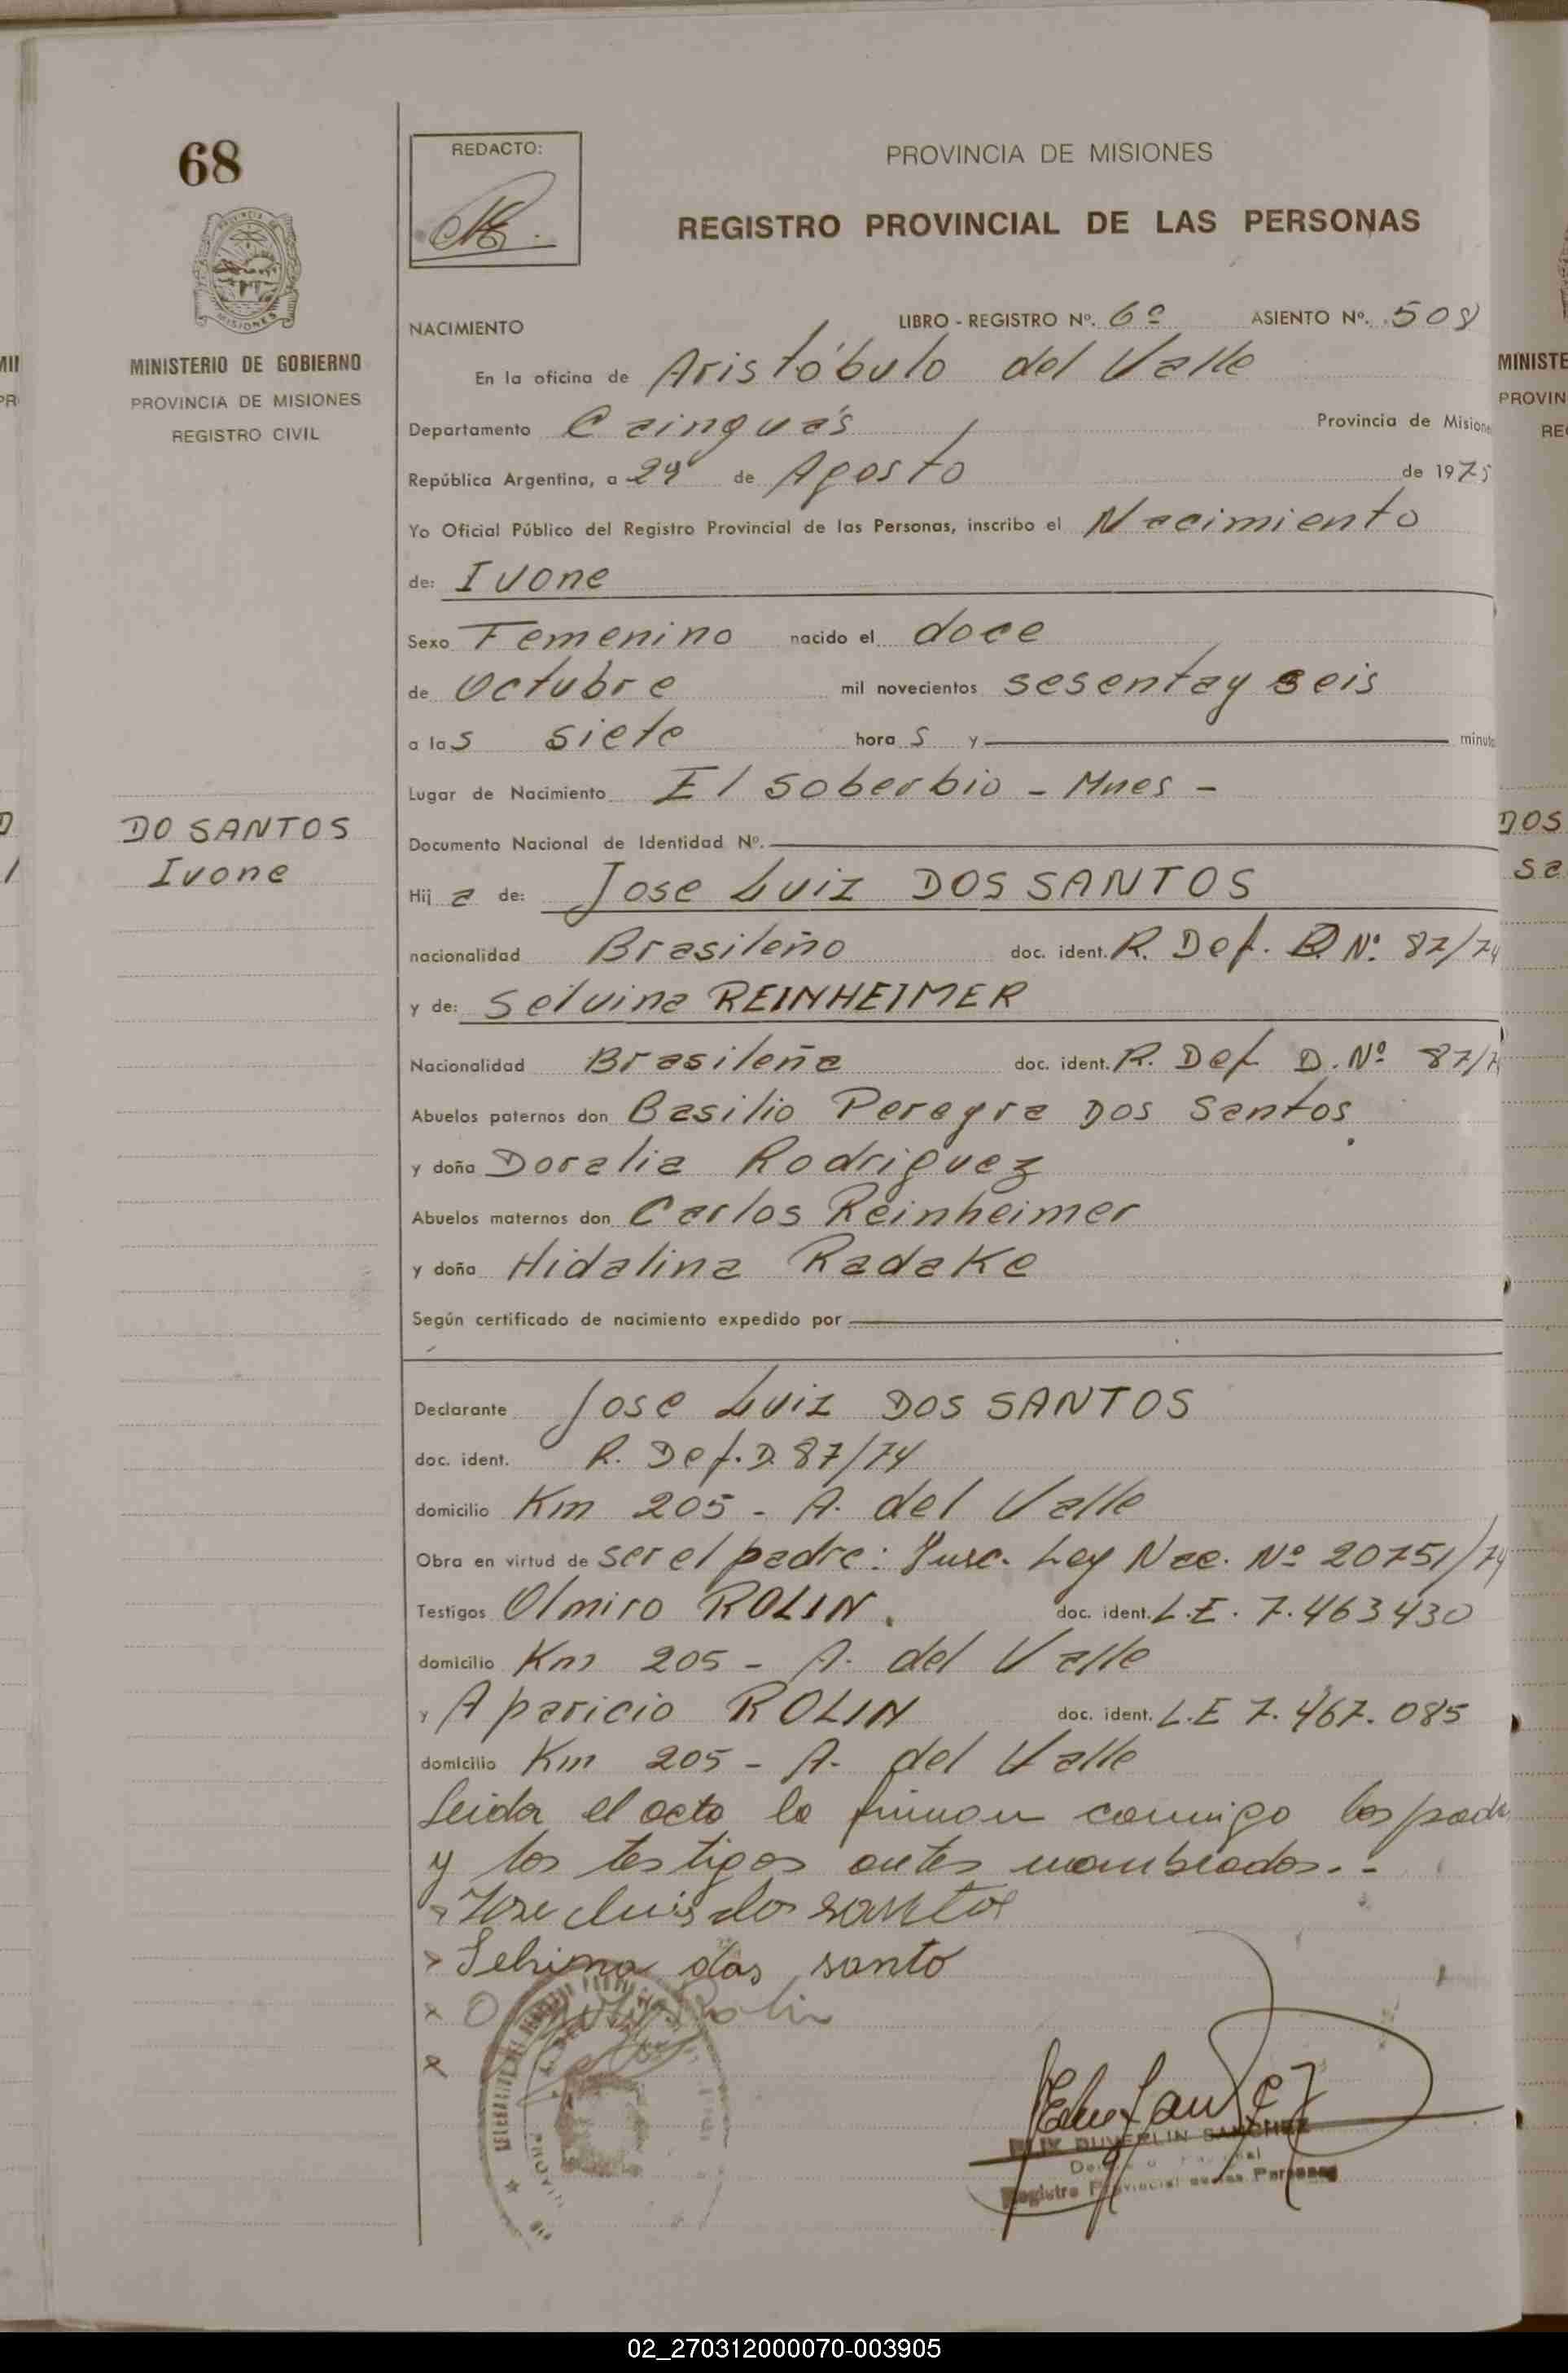 68
REDACTO:
PROVINCIA DE MISIONES
REGISTRO PROVINCIAL DE LAS PERSONAS
MINISTERIO DE GOBIERNO
PROVINCIA DE MISIONES
REGISTRO CIVIL
NACIMIENTO LIBRO - REGISTRO Nº. 6º ASIENTO Nº. 508
En la oficina de Aristóbulo del Valle
Departamento Cainguás Provincia de Misione
República Argentina, a 29 de Agosto de 1975
Yo Oficial Público del Registro Provincial de las Personas, inscribo el Nacimiento
de: Ivone
Sexo Femenino nacido el doce
de Octubre mil novecientos sesentay seis
a las siete horas y minuto
Lugar de Nacimiento El Soberbio - Mnes -
Documento Nacional de Identidad Nº.
DO SANTOS
Ivone
Hija de: Jose Luiz DOS SANTOS
nacionalidad Brasileño doc. ident. R. Def. D Nº 87/74
y de: Selvina REINHEIMER
Nacionalidad Brasileña doc. ident. R. Def D. Nº 87/7
Abuelos paternos don Basilio Pereyra Dos Santos
y doña Doralia Rodriguez
Abuelos maternos don Carlos Reinheimer
y doña Hidalina Radake
Según certificado de nacimiento expedido por
Declarante Jose Luiz DOS SANTOS
doc. ident. R. Def. D. 87/74
domicilio Km 205 - A. del Valle
Obra en virtud de ser el padre: Insc. Ley Nac. Nº 20751/74
Testigos Olmiro ROLIN. doc. ident. L.E. 7.463430
domicilio Km 205 - A. del Valle
y Aparicio ROLIN doc. ident. L.E 7.467.085
domicilio Km 205 - A. del Valle
Leida el acta la firman conmigo los pad
y los testigos antes nombrados.-
Jose Luis dos santos
Selvina dos santo
Rolin
DUVERLIN SANCHEZ
Registro Provincial de las Personas
MINISTE
PROVIN
RE
DOS
Sa
02_270312000070-003905